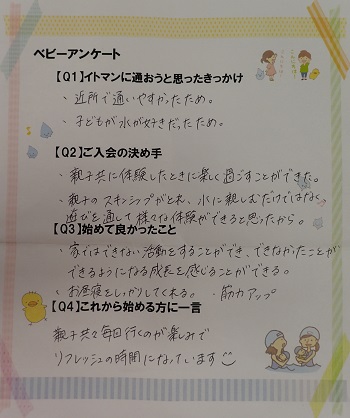 ベビーアンケート
【Q1】イトマンに通おうと思ったきっかけ
・近所で通いやすかったため。
・子どもが水が好きだったため。
【Q2】ご入会の決め手
・親子共に体験したときに楽しく過ごすことができた。
・親子のスキンシップがとれ、水に親しむだけではなく、
遊びを通して様々な体験ができると思ったから。
【Q3】始めて良かったこと
・家ではできない活動をすることができ、できなかったことが
できるようになる成長を感じることができる。
・お昼寝をしっかりしてくれる。 ・筋力アップ
【Q4】これから始める方に一言
親子共々毎回行くのが楽しみで
リフレッシュの時間になっています